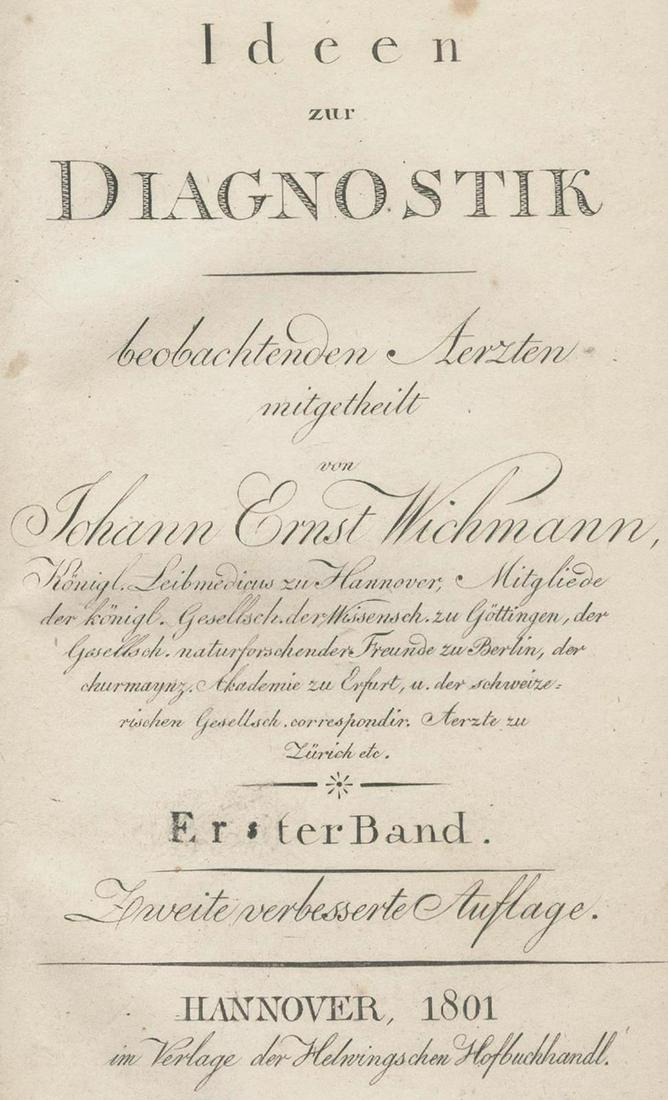 Ideen
zur
DIAGNOSTIK
beobachtenden Aerzten
mitgetheilt
von
Johann Ernst Wichmann,
Königl. Leibmedicus zu Hannover, Mitgliede
der königl. Gesellsch. der Wissensch. zu Göttingen, der
Gesellsch. naturforschender Freunde zu Berlin, der
churmaynz. Akademie zu Erfurt, u. der schweize=
rischen Gesellsch. correspondir. Aerzte zu
Zürich etc.
Erster Band.
Zweite verbesserte Auflage.
HANNOVER, 1801
im Verlage der Helwingschen Hofbuchhandl.